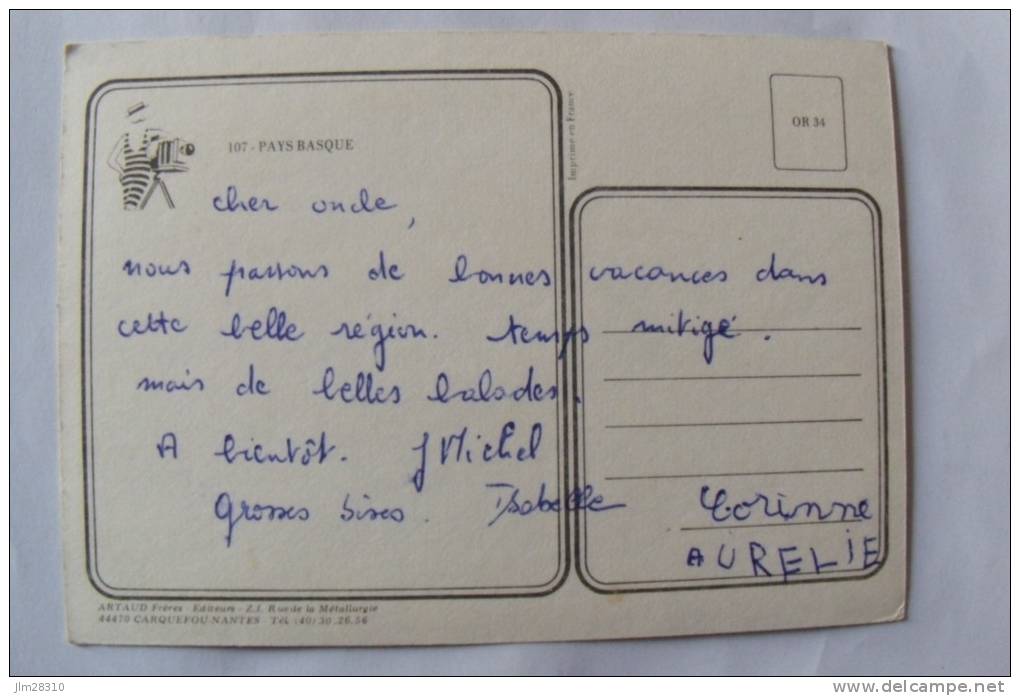 107 - PAYS BASQUE
OR 34
Imprimé en France
cher oncle,
nous passons de bonnes vacances dans
cette belle région. temps mitigé.
mais de belles balades.
A bientôt. J Michel
grosses bises. Isabelle Corinne
AURELIE
ARTAUD Frères - Editeurs - Z.I. Rue de la Métallurgie
44470 CARQUEFOU-NANTES - Tél. (40) 30.26.56
jlm28310
www.delcampe.net